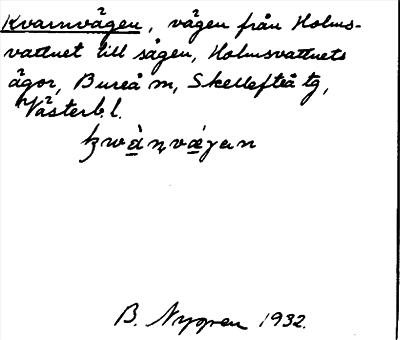 Kvarnvägen, vägen från Holms-
vattnet till sågen, Holmsvattnets
ägor, Bureå sn, Skellefteå tg,
Västerb. l.
B. Nygren 1932.